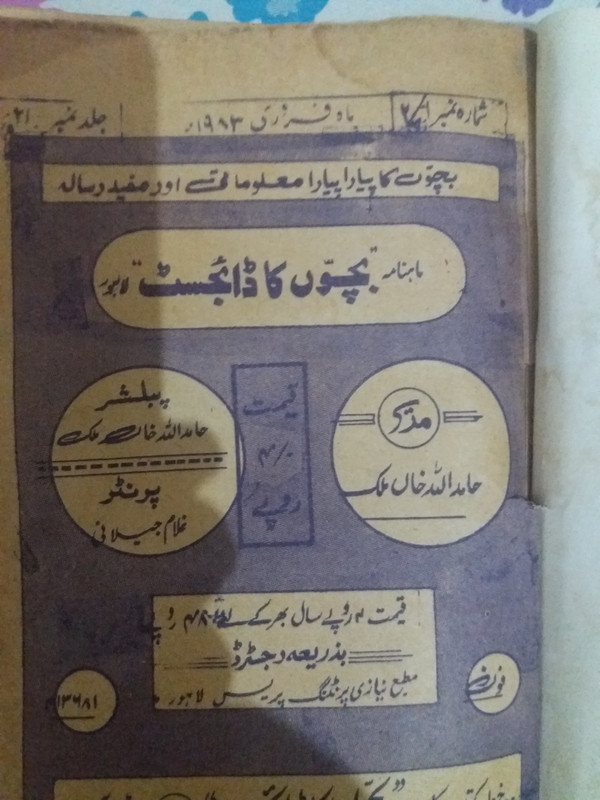 شمارہ نمبر ۲
ماہ فروری ۱۹۸۳ء
جلد نمبر ۲۱
بچوں کا پیارا پیارا معلوماتی اور مفید رسالہ
ماہنامہ "بچّوں کا ڈائجسٹ" لاہور
مدیر
حامد اللہ خاں ملک
قیمت
۴/۰
روپے
پبلشر
حامد اللہ خاں ملک
پرنٹر
غلام جیلانی
قیمت ۴ روپے سال بھر کے لیے ۴۸ روپے
بذریعہ رجسٹرڈ
مطبع نیازی پرنٹنگ پریس لاہور
فون